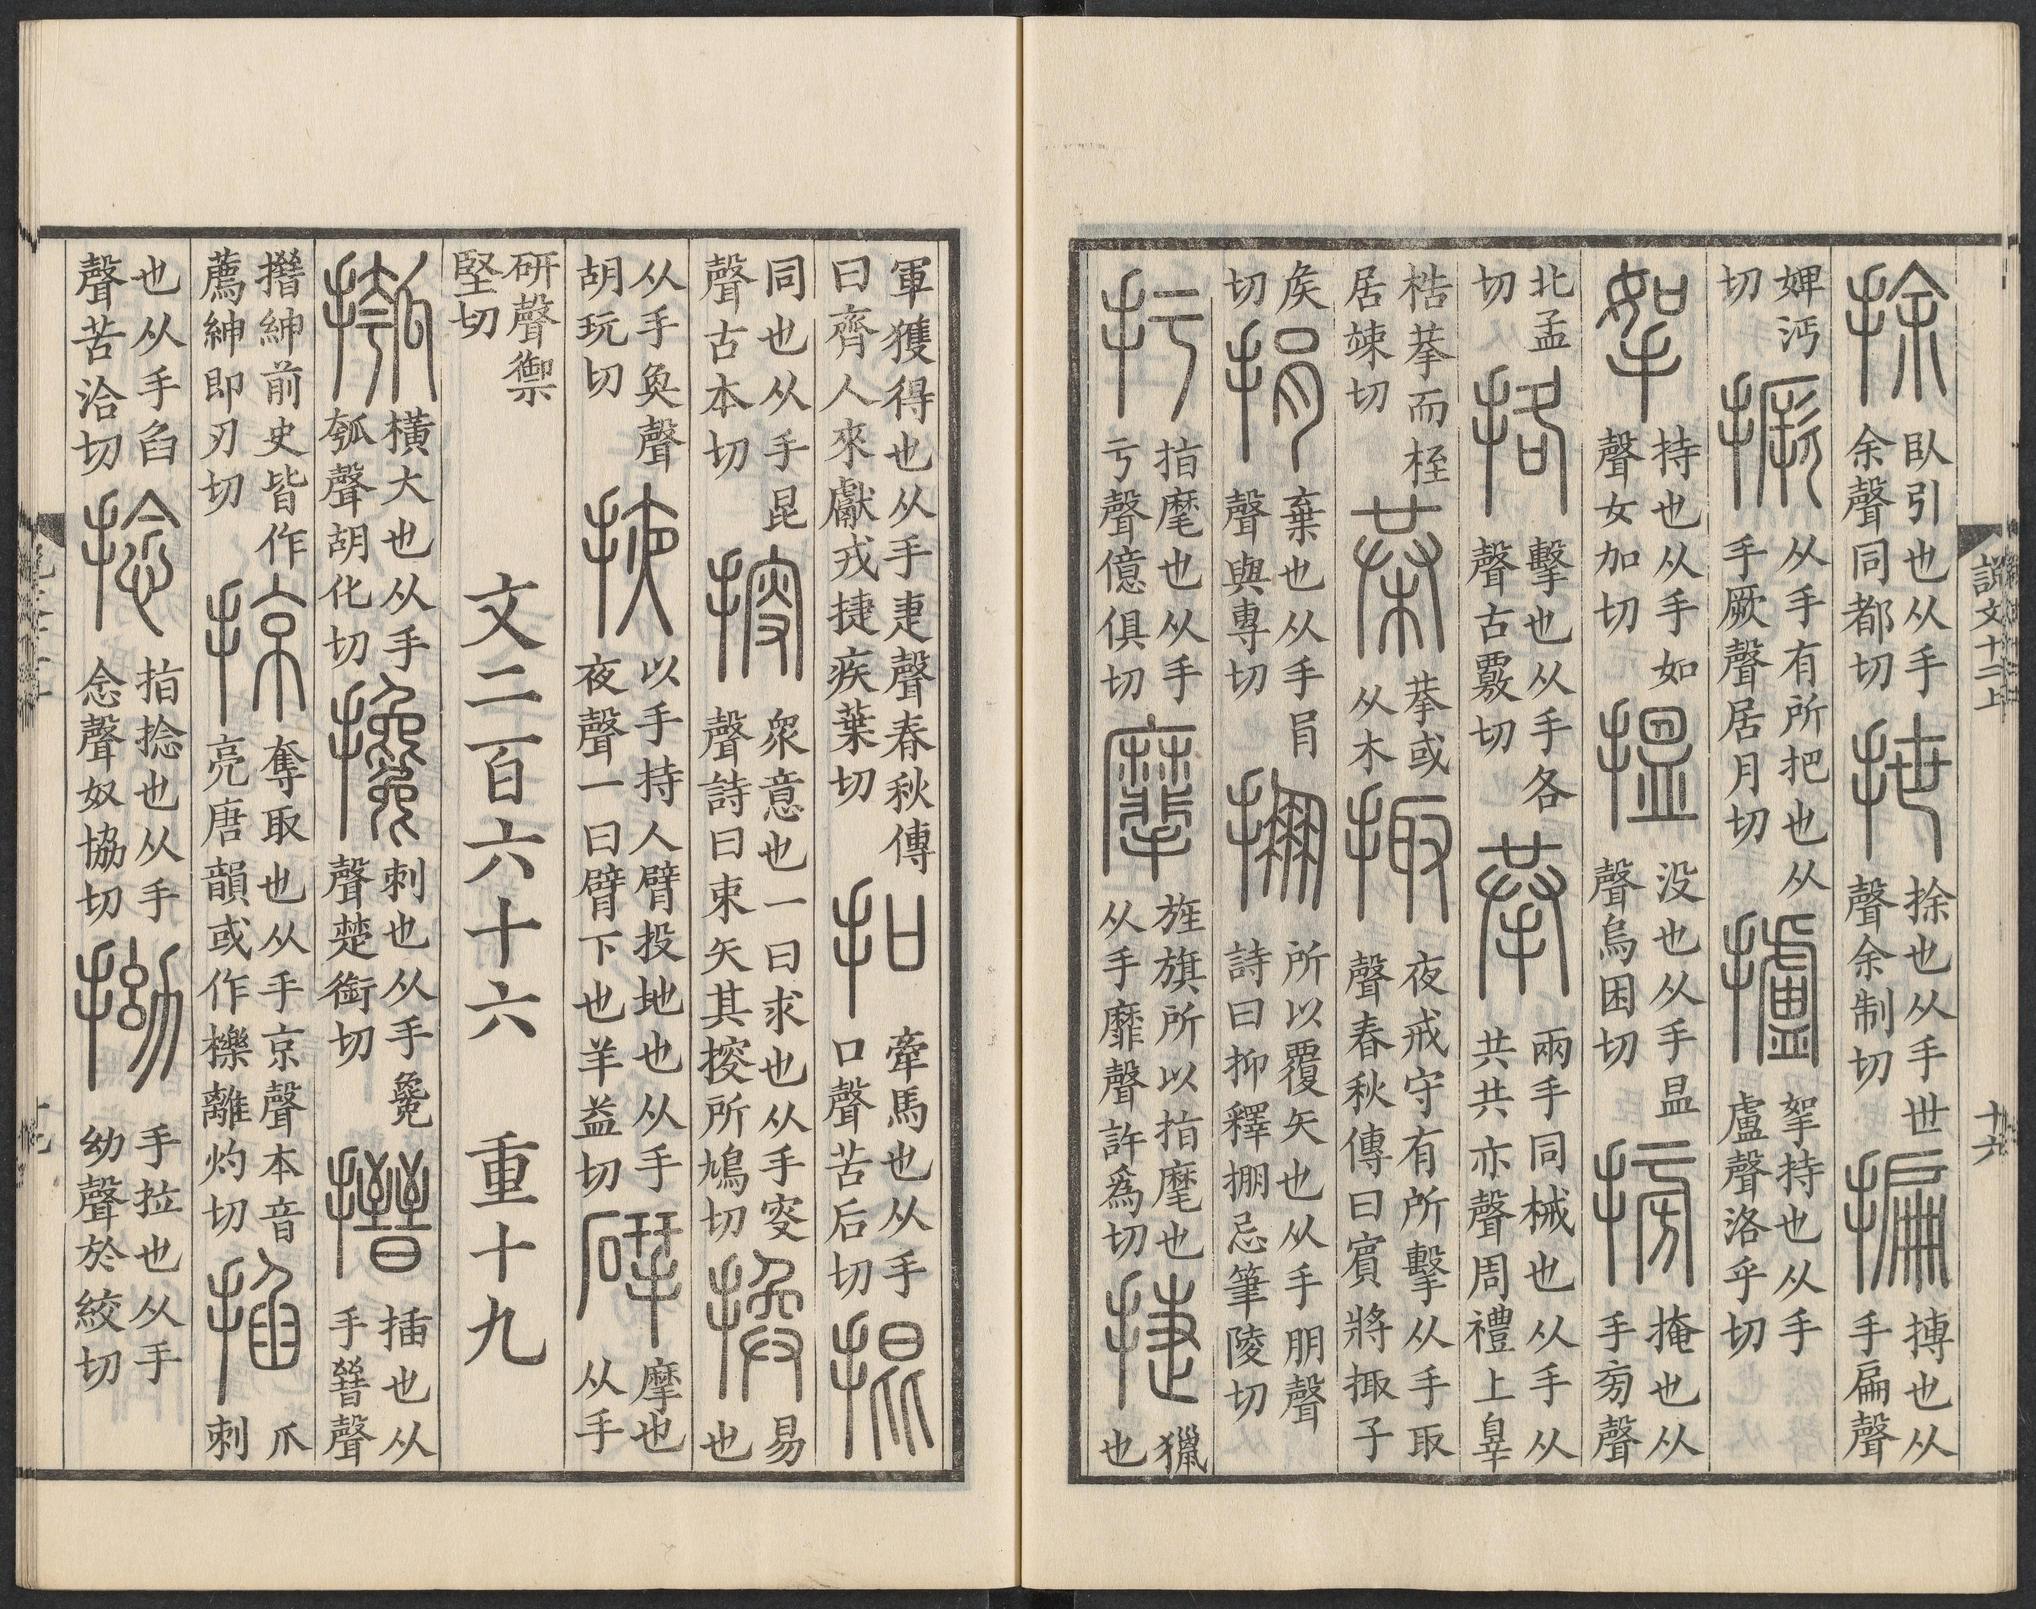 捈臥引也从手余聲同都切抴捈也从手世聲余制切揙搏也从手扁聲
婢沔切撅从手有所把也从手厥聲居月切攎挐持也从手盧聲洛乎切
挐持也从手如聲女加切搵没也从手昷聲烏困切搒掩也从手旁聲
北孟切挌擊也从手各聲古覈切拲兩手同械也从手从共共亦聲周禮上辠
梏拲而桎居竦切𣐊拲或从木掫夜戒守有所擊从手取聲春秋傳曰賓將掫子
矦切捐棄也从手肙聲與專切掤所以覆矢也从手朋聲詩曰抑釋掤忌筆陵切
扜指麾也从手亏聲億俱切𢸑旌旗所以指麾也从手靡聲許爲切捷獵也
說文十二上
十六
軍獲得也从手疌聲春秋傳曰齊人來獻戎捷疾葉切扣牽馬也从手口聲苦后切掍
同也从手昆聲古本切搜眾意也一曰求也从手叜聲詩曰束矢其搜所鳩切換易也
从手奐聲胡玩切掖以手持人臂投地也从手夜聲一曰臂下也羊益切摼摩也从手
研聲禦堅切
文二百六十六　重十九
摦橫大也从手瓠聲胡化切攙刺也从手毚聲楚銜切搢插也从手晉聲
搢紳前史皆作薦紳即刃切掠奪取也从手京聲本音亮唐韻或作擽離灼切掐爪刺
也从手臽聲苦洽切捻指捻也从手念聲奴協切拗手拉也从手幼聲於絞切